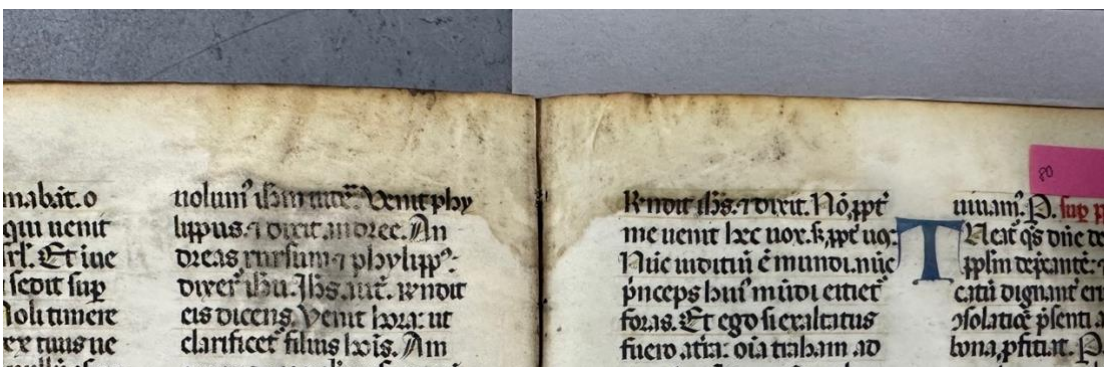 mabāt. o
qui uenit
rl̃. Et iue
sedit sup
Noli timere
rex tuus ue
uolum᷒ ih̅m uidẽ. Venit phy
lippus. ⁊ dixit andree. An
dreas rursum ⁊ phylipp᷒
dixer̃ ihu. Ihs. aut̃. rñdit
eis dicens. Venit hora: ut
clarificet᷑ filius hoīs. Am
Rñdit ihs. ⁊ dixit. Nō ꝓpt̃
me uenit hec uox. s; ꝓpt̃ uos
Nūc iuditiū ē mundi. nūc
p̃nceps hui᷒ mūdi eitiet᷑
foras. Et ego si exaltatus
fuero a tr̃a: oīa traham ad
80
uiuam᷒. P. sup p
Teat᷑ q̃s dn̄e de
catū dignant᷑ er
ꝯsolatiōe p̃senti. a
bona ꝓfitiat. P.